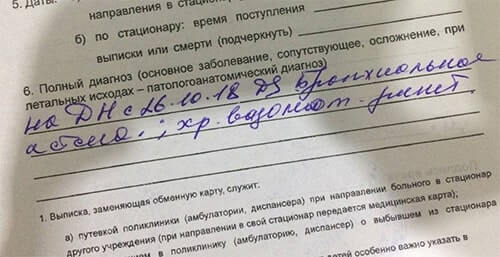 5. Даты:
направления в стационар
б) по стационару: время поступления
выписки или смерти (подчеркнуть)
6. Полный диагноз (основное заболевание, сопутствующее, осложнение, при
летальных исходах – патологоанатомический диагноз)
на ДН с 26.10.18 DS бронхиальная
астма. ; хр. вазомот. ринит.
1. Выписка, заменяющая обменную карту, служит:
а) путевкой поликлиники (амбулатории, диспансера) при направлении больного в стационар
другого учреждения (при направлении в свой стационар передается медицинская карта);
в поликлинику (амбулаторию, диспансер) о выбывшем из стационара
детей особенно важно указать в